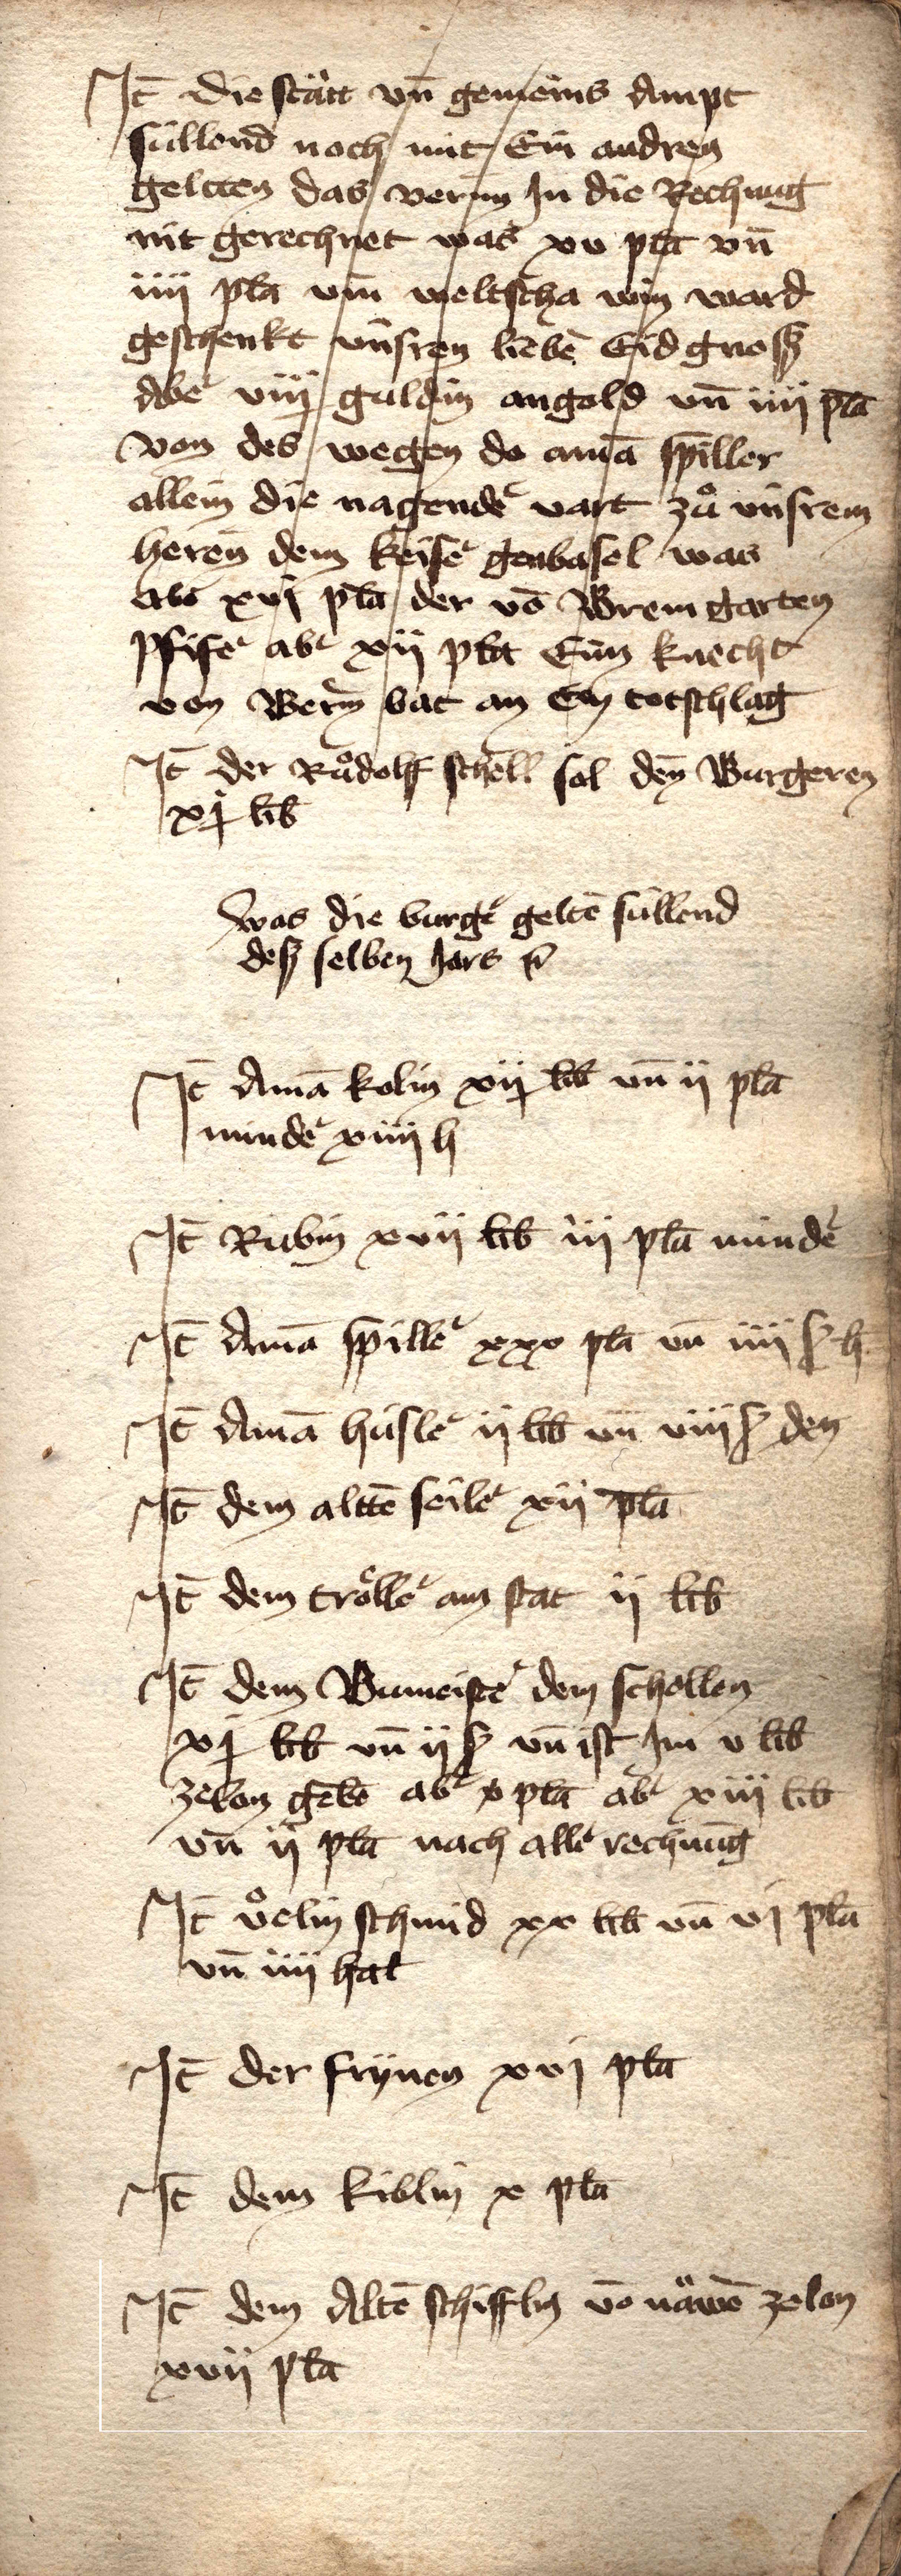 It̄ die stătt vn̄ gemeins Ampt
sullend noch mit Ein andren
geltten das verin In die Rechnung
nit gerechnet was xv pla vn̄
iiii pla vm̄ weltscha win ward
geschenkt vnsren liebē Eidgnosß
Abe᷑ viij guldin angold vn̄ iiii pla
von des wegen do amā spiller
allein die nagende᷑ vart zů vnsrem
heren dem keise᷑ genbasel was
abe᷑ xvj pla der vō Bremgarten
pfife᷑ abe᷑ xii pla Eim knecht
von Bern bat an Ein totschlag
It̄ der Růdolff schell sol den Burgeren
xj lib
was die burge᷑ geltē sullend
desß selben Jars
It̄ Amā kolin xij lib vn̄ ii pla
minde᷑ xiiii h
It̄ Rubin xvii lib iii pla minde᷑
It̄ Amā spille᷑ xxx pla vn̄ iiii ß h
It̄ Amā husle᷑ ii lib vn̄ viii ß den
It̄ dem alttē seile᷑ xii pla
It̄ dem trölle᷑ am stat ii lib
It̄ dem Bumeiste᷑ dem schellen
xj lib vn̄ ii ß vn̄ ist Im v lib
zelon gebē abe᷑ x pla abe᷑ xiii lib
vn̄ ii pla nach alle᷑ rechnung
It̄ ůelin schmid xx lib vn̄ vj pla
vn̄ iiii hal
It̄ der frijnen xvj pla
It̄ dem kiblin x pla
It̄ dem Altē schifflin vō näwē zelon
xvii pla